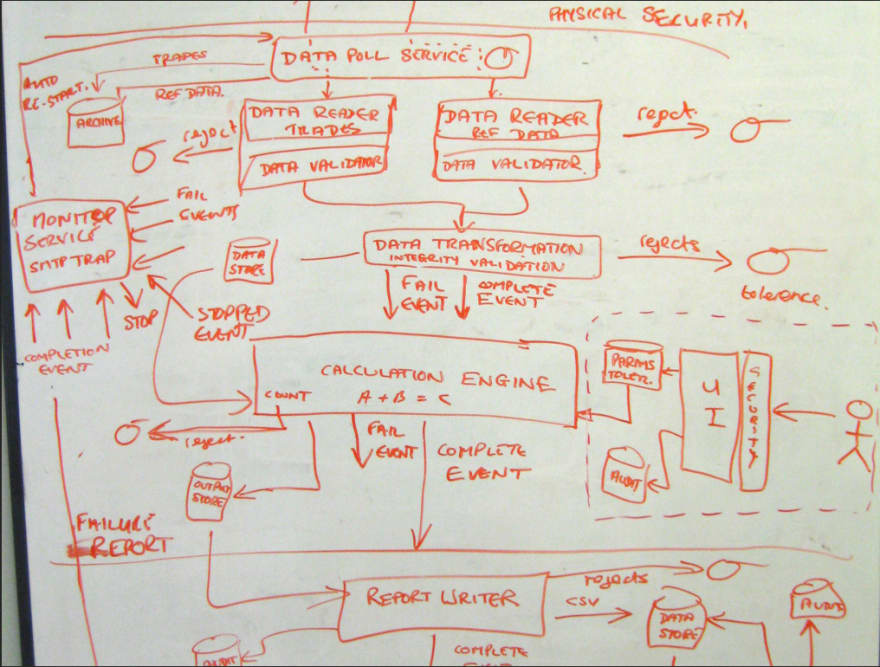 PHYSICAL SECURITY.
DATA POLL SERVICE
TRADES
AUTO
RE-START.
REF DATA.
ARCHIVE
DATA READER
TRADES
DATA VALIDATOR
DATA READER
REF DATA
DATA VALIDATOR
reject
reject.
MONITOR
SERVICE
SMTP TRAP
FAIL
EVENTS
DATA
STORE
DATA TRANSFORMATION
INTEGRITY VALIDATION
rejects
tolerence.
FAIL
EVENT
COMPLETE
EVENT
STOP
STOPPED
EVENT
COMPLETION
EVENT
CALCULATION ENGINE
COUNT
A + B = C
PARAMS
TOLER.
UI
SECURITY
AUDIT
reject.
FAIL
EVENT
COMPLETE
EVENT
OUTPUT
STORE
FAILURE
REPORT
REPORT WRITER
rejects
CSV
DATA
STORE
AUDIT
AUDIT
COMPLETE
EVENT